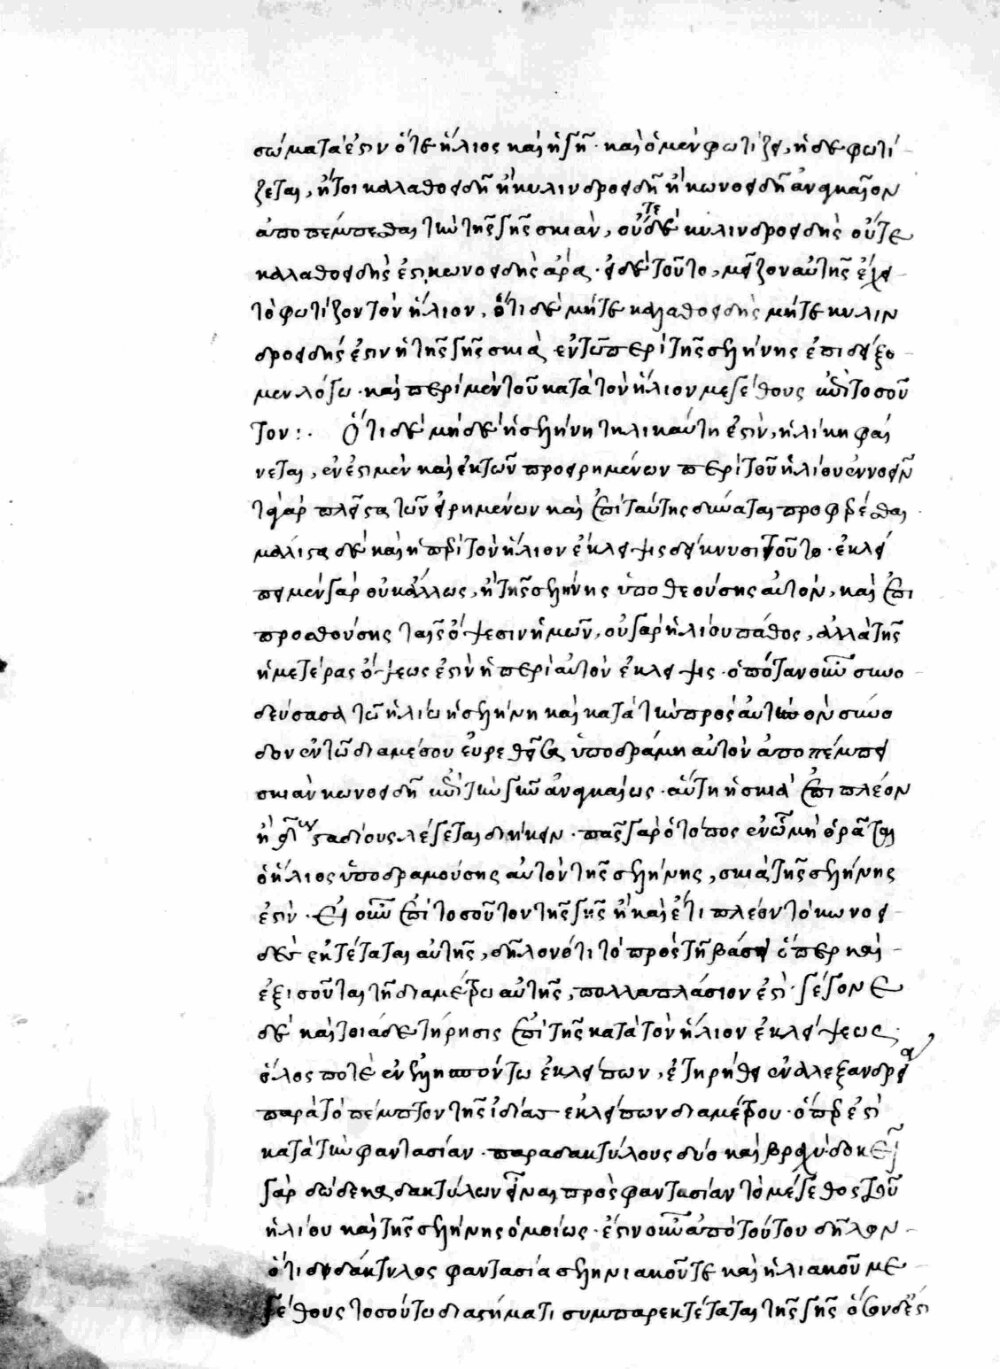 σώματά ἐστιν ὅ τε ἥλιος καὶ ἡ γῆ· καὶ ὁ μὲν φωτίζει, ἡ δὲ φωτί
ζεται, ἤτοι καλαθοειδῆ ἢ κυλινδροειδῆ ἢ κωνοειδῆ ἀναγκαῖον
ἀποπέμπεσθαι τὴν τῆς γῆς σκιὰν, οὔτε δὲ κυλινδροειδὴς οὔτε
καλαθοειδὴς ἐστι, κωνοειδὴς ἄρα· εἰ δὲ τοῦτο, μεῖζον αὐτῆς ἔχει
τὸ φωτίζον τὸν ἥλιον, ὅτι δὲ μήτε καλαθοειδὴς μήτε κυλιν
δροειδής ἐστιν ἡ τῆς γῆς σκιὰ, ἐν τῷ περὶ τῆς σελήνης ἐπιδείξο
μεν λόγω· καὶ περὶ μὲν τοῦ κατὰ τὸν ἥλιον μεγέθους ἐπὶ τοσοῦ
τον:· Ὅτι δὲ μηδὲ ἡ σελήνη τηλικαύτη ἐστὶν, ἡλίκη φαί
νεται, ἔνεστι μὲν καὶ ἐκ τῶν προειρημένων περὶ τοῦ ἡλίου ἐννοεῖν
τὰ γὰρ πλεῖστα τῶν εἰρημένων καὶ ἐπὶ ταύτης δύναται προφέρεσθαι
μάλιστα δὲ καὶ ἡ περὶ τὸν ἥλιον ἔκλειψις δείκνυσι τοῦτο· ἐκλεί
πει μὲν γὰρ οὐκ ἄλλως, ἢ τῆς σελήνης ὑποθεούσης αὐτὸν, καὶ ἐπι
προσθούσης ταῖς ὄψεσιν ἡμῶν, οὐ γὰρ ἡλίου πάθος, ἀλλὰ τῆς
ἡμετέρας ὄψεως ἐστὶν ἡ περὶ αὐτὸν ἔκλειψις· ὁπόταν οὖν συνο
δεύσασα τῶ ἡλίω ἡ σελήνη καὶ κατὰ τὴν πρὸς αὐτὸν σύνο
δον ἐν τῶ διαμέσου εὑρεθεῖσα ὑποδράμη αὐτὸν ἀποπέμπει
σκιὰν κωνοειδῆ ἐπὶ τὴν γῆν ἀναγκαίως· αὕτη ἡ σκιὰ ἐπιπλέον
ἢ σταδίους λέγεται διήκειν· πᾶς γὰρ ὁ τόπος ἐν ᾧ μὴ ὁρᾶται
ὁ ἥλιος ὑποδραμούσης αὐτὸν τῆς σελήνης, σκιὰ τῆς σελήνης
ἐστὶν· εἰ οὖν ἐπὶ τοσοῦτον τῆς γῆς ἢ καὶ ἔτι πλέον τὸ κωνοει
δὲς ἐκτέταται αὐτῆς, δῆλον ὅτι τὸ πρὸς τῆ βάσει ὅπερ καὶ
ἐξισοῦται τῆ διαμέτρω αὐτῆς, πολλαπλάσιον ἐστὶ· γέγονε
δὲ καὶ τοιάδε τήρησις ἐπὶ τῆς κατὰ τὸν ἥλιον ἐκλείψεως·
ὅλος ποτὲ ἐν ἑλλησπόντω ἐκλείπων, ἐτηρήθη ἐν ἀλεξανδρεία
παρὰ τὸ πέμπτον τῆς ἰδίας ἐκλείπων διαμέτρου· ὅπερ ἐστὶ
κατὰ τὴν φαντασίαν· παρὰ δακτύλους δύο καὶ βραχύ· δοκεῖ
γὰρ δώδεκα δακτύλων εἶναι πρὸς φαντασίαν τὸ μέγεθος τοῦ
ἡλίου καὶ τῆς σελήνης ὁμοίως· ἔστιν οὖν ἀπὸ τούτου δῆλον
ὅτι δύο δάκτυλος φαντασία σεληνιακοῦ τε καὶ ἡλιακοῦ με
γέθους τοσούτω διαστήματι συμπαρεκτέταται τῆς γῆς ὅσον ἐστὶ